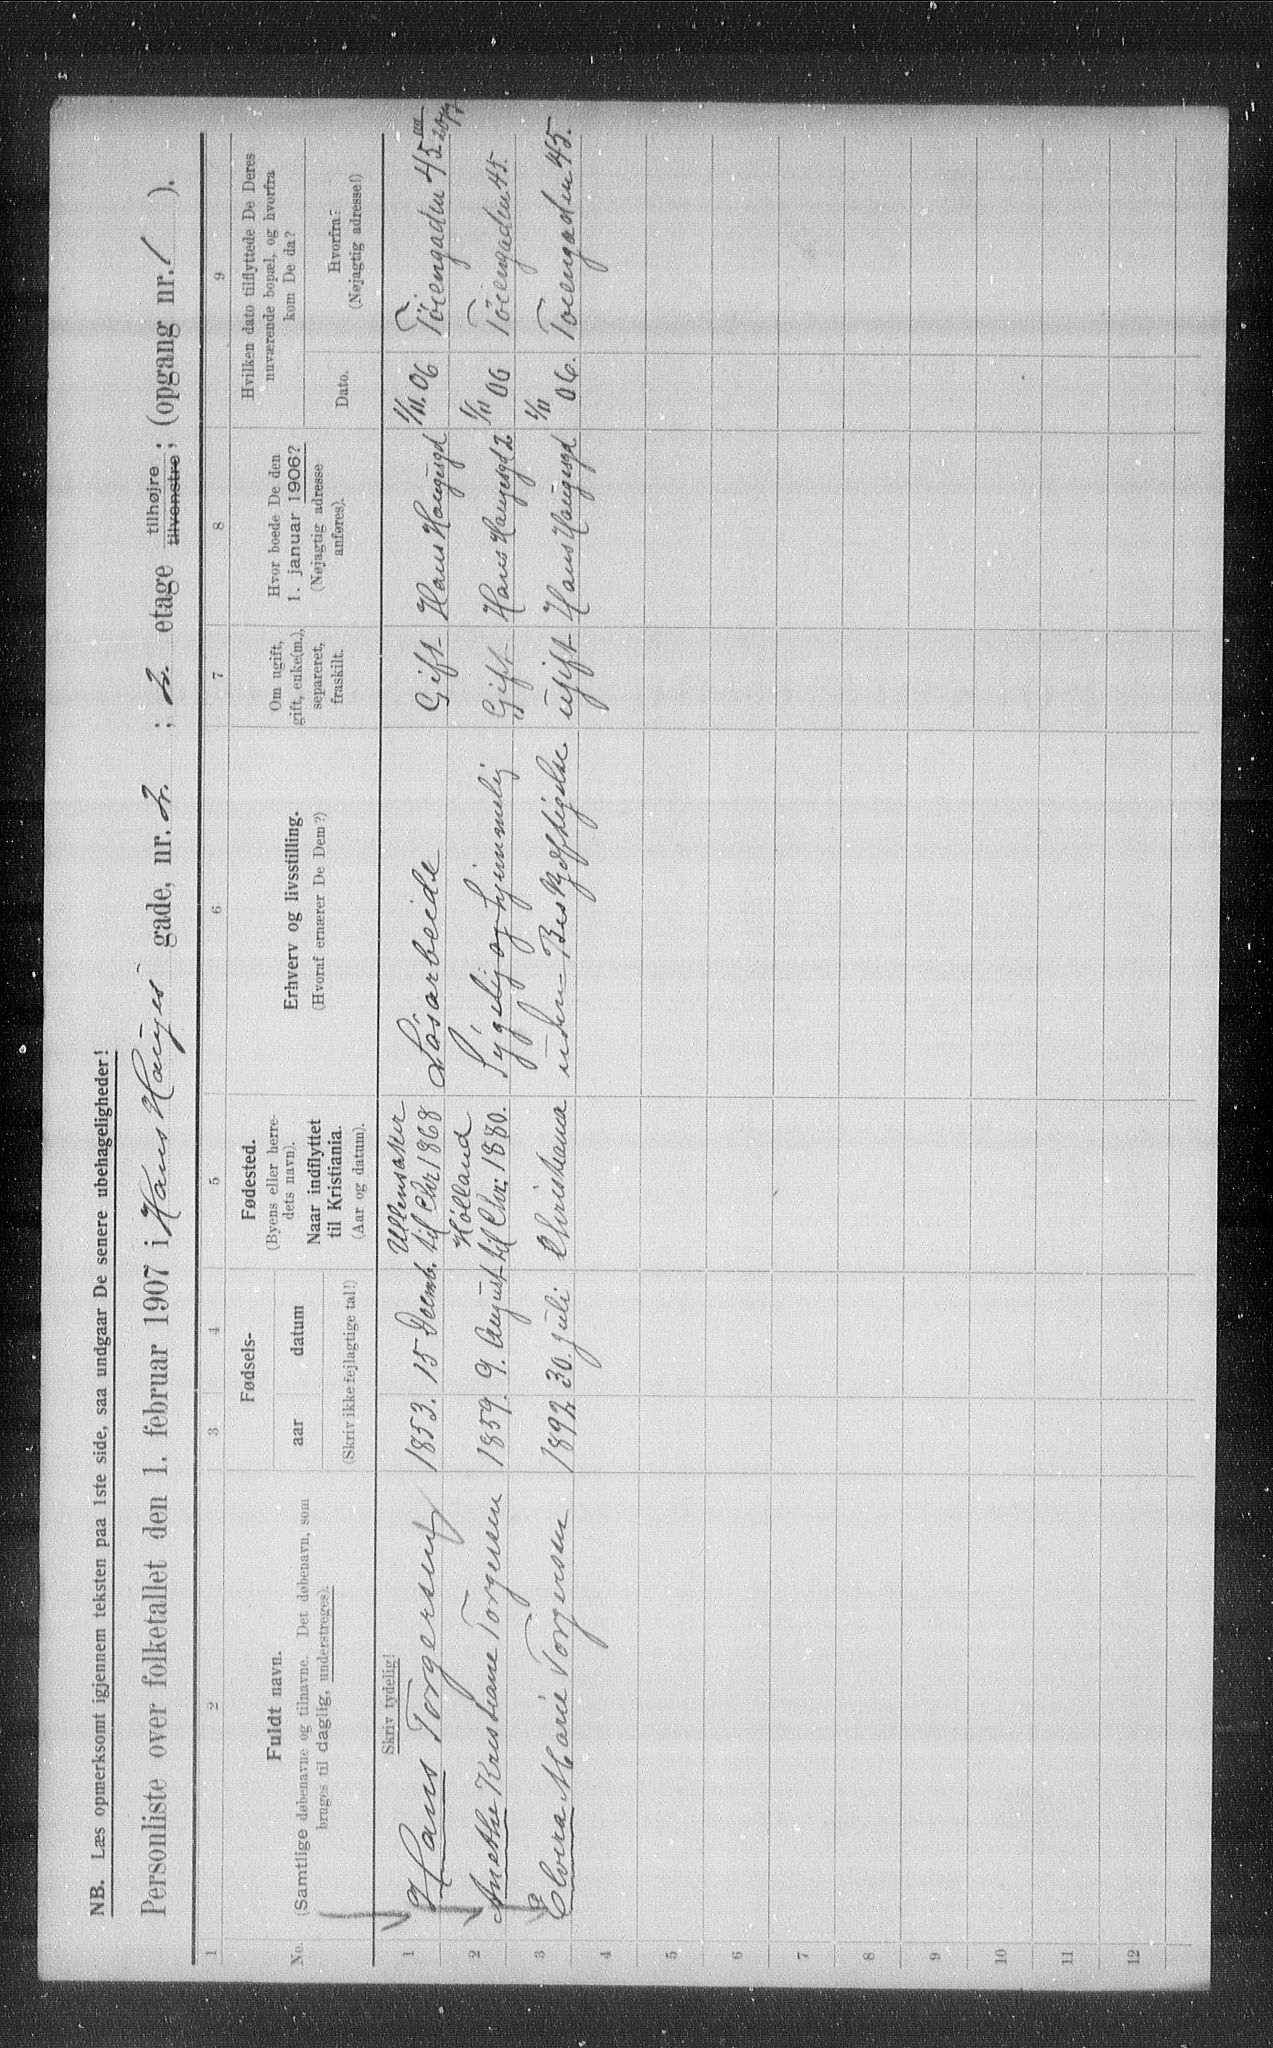 NB. Læs opmerksomt igjennem teksten paa 1ste side, saa undgaar De senere ubehageligheder!
Personliste over folketallet den 1. februar 1907 i Hans Hauges gade, nr. 2. ; 2. etage tilhøjre tilvenstre; (opgang nr. 1 ).
1 2 3 4 5 6 7 8 9
No.
Fuldt navn.
(Samtlige døbenavne og tilnavne. Det døbenavn, som
bruges til daglig, understreges).
Fødsels-
aar datum
(Skriv ikke fejlagtige tal!)
Fødested.
(Byens eller herre-
dets navn).
Naar indflyttet
til Kristiania.
(Aar og datum).
Erhverv og livsstilling.
(Hvoraf ernærer De Dem?)
Om ugift,
gift, enke(m.),
separeret,
fraskilt.
Hvor boede De den
1. januar 1906?
(Nøjagtig adresse
anføres).
Hvilken dato tilflyttede De Deres
nuværende bopæl, og hvorfra
kom De da?
Dato.
Hvorfra?
(Nøjagtig adresse!)
Skriv tydelig!
1 Hans Torgersen 1853. 15 Decmb. Ullensaker til Chr 1868 Løsarbeide Gift Hans Haugesgd 1/11. 06 Töiengaden 45
2 Anethe Kristiane Torgersen 1859. 9. August Holland til Chr: 1880. Sygelig og hjemmelig Gift Hans Haugesgd 2 1/11 06 Töiengaden 45.
3 Elvira Marie Torgersen 1892 30. juli Christiania uden Beskjæftigelse. ugift Hans Haugesgd 1/11 06. Toiengaden 45.
4
5
6
7
8
9
10
11
12